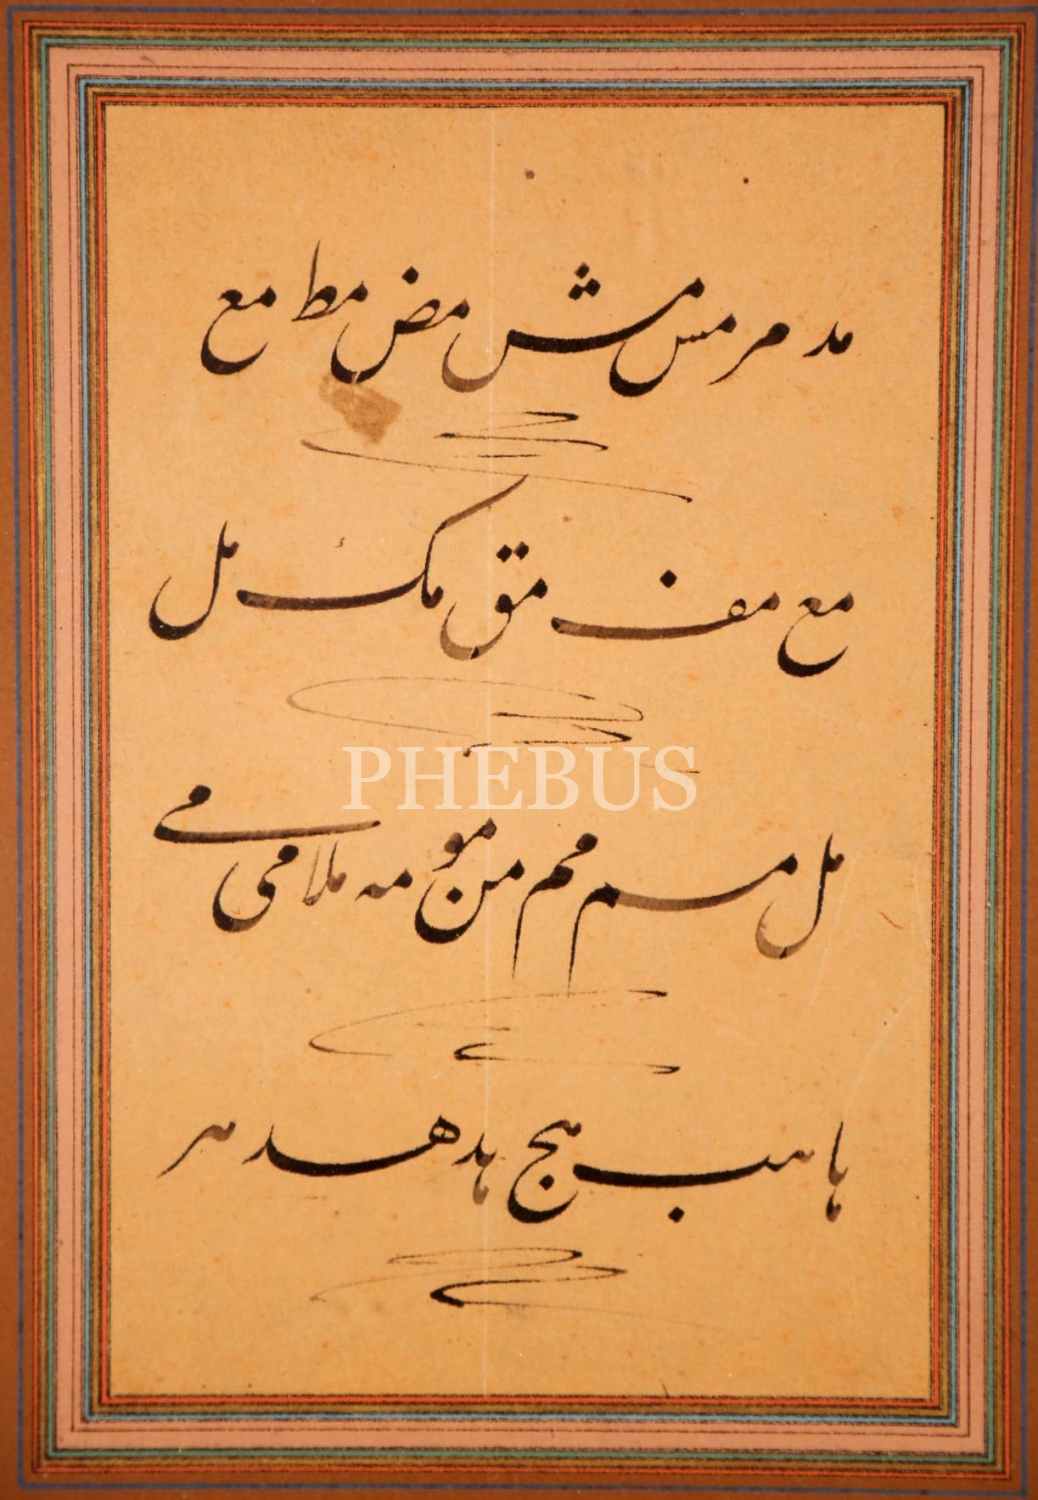 مد مر مس مش مض مط مع
مع مف مق مک مل
PHEBUS
مل مسم محم من مو مه ملا می مے
ها هب هج هد هد هر